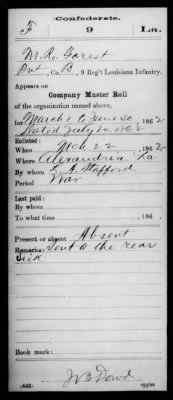 Confederate.
F 9 La.
M. R. Forest
Pvt, Co. B, 9 Reg't Louisiana Infantry.
Appears on
Company Muster Roll
of the organization named above,
for March 1 to June 30, 1862
dated July 20, 1862
Enlisted:
When Mch 22, 1862
Where Alexandria, La.
By whom L. A. Stafford
Period War
Last paid:
By whom
To what time , 186 .
Present or absent Absent
Remarks: Sent to the rear
sick.
Book mark:
J W B Dowd
(642) Copyist.